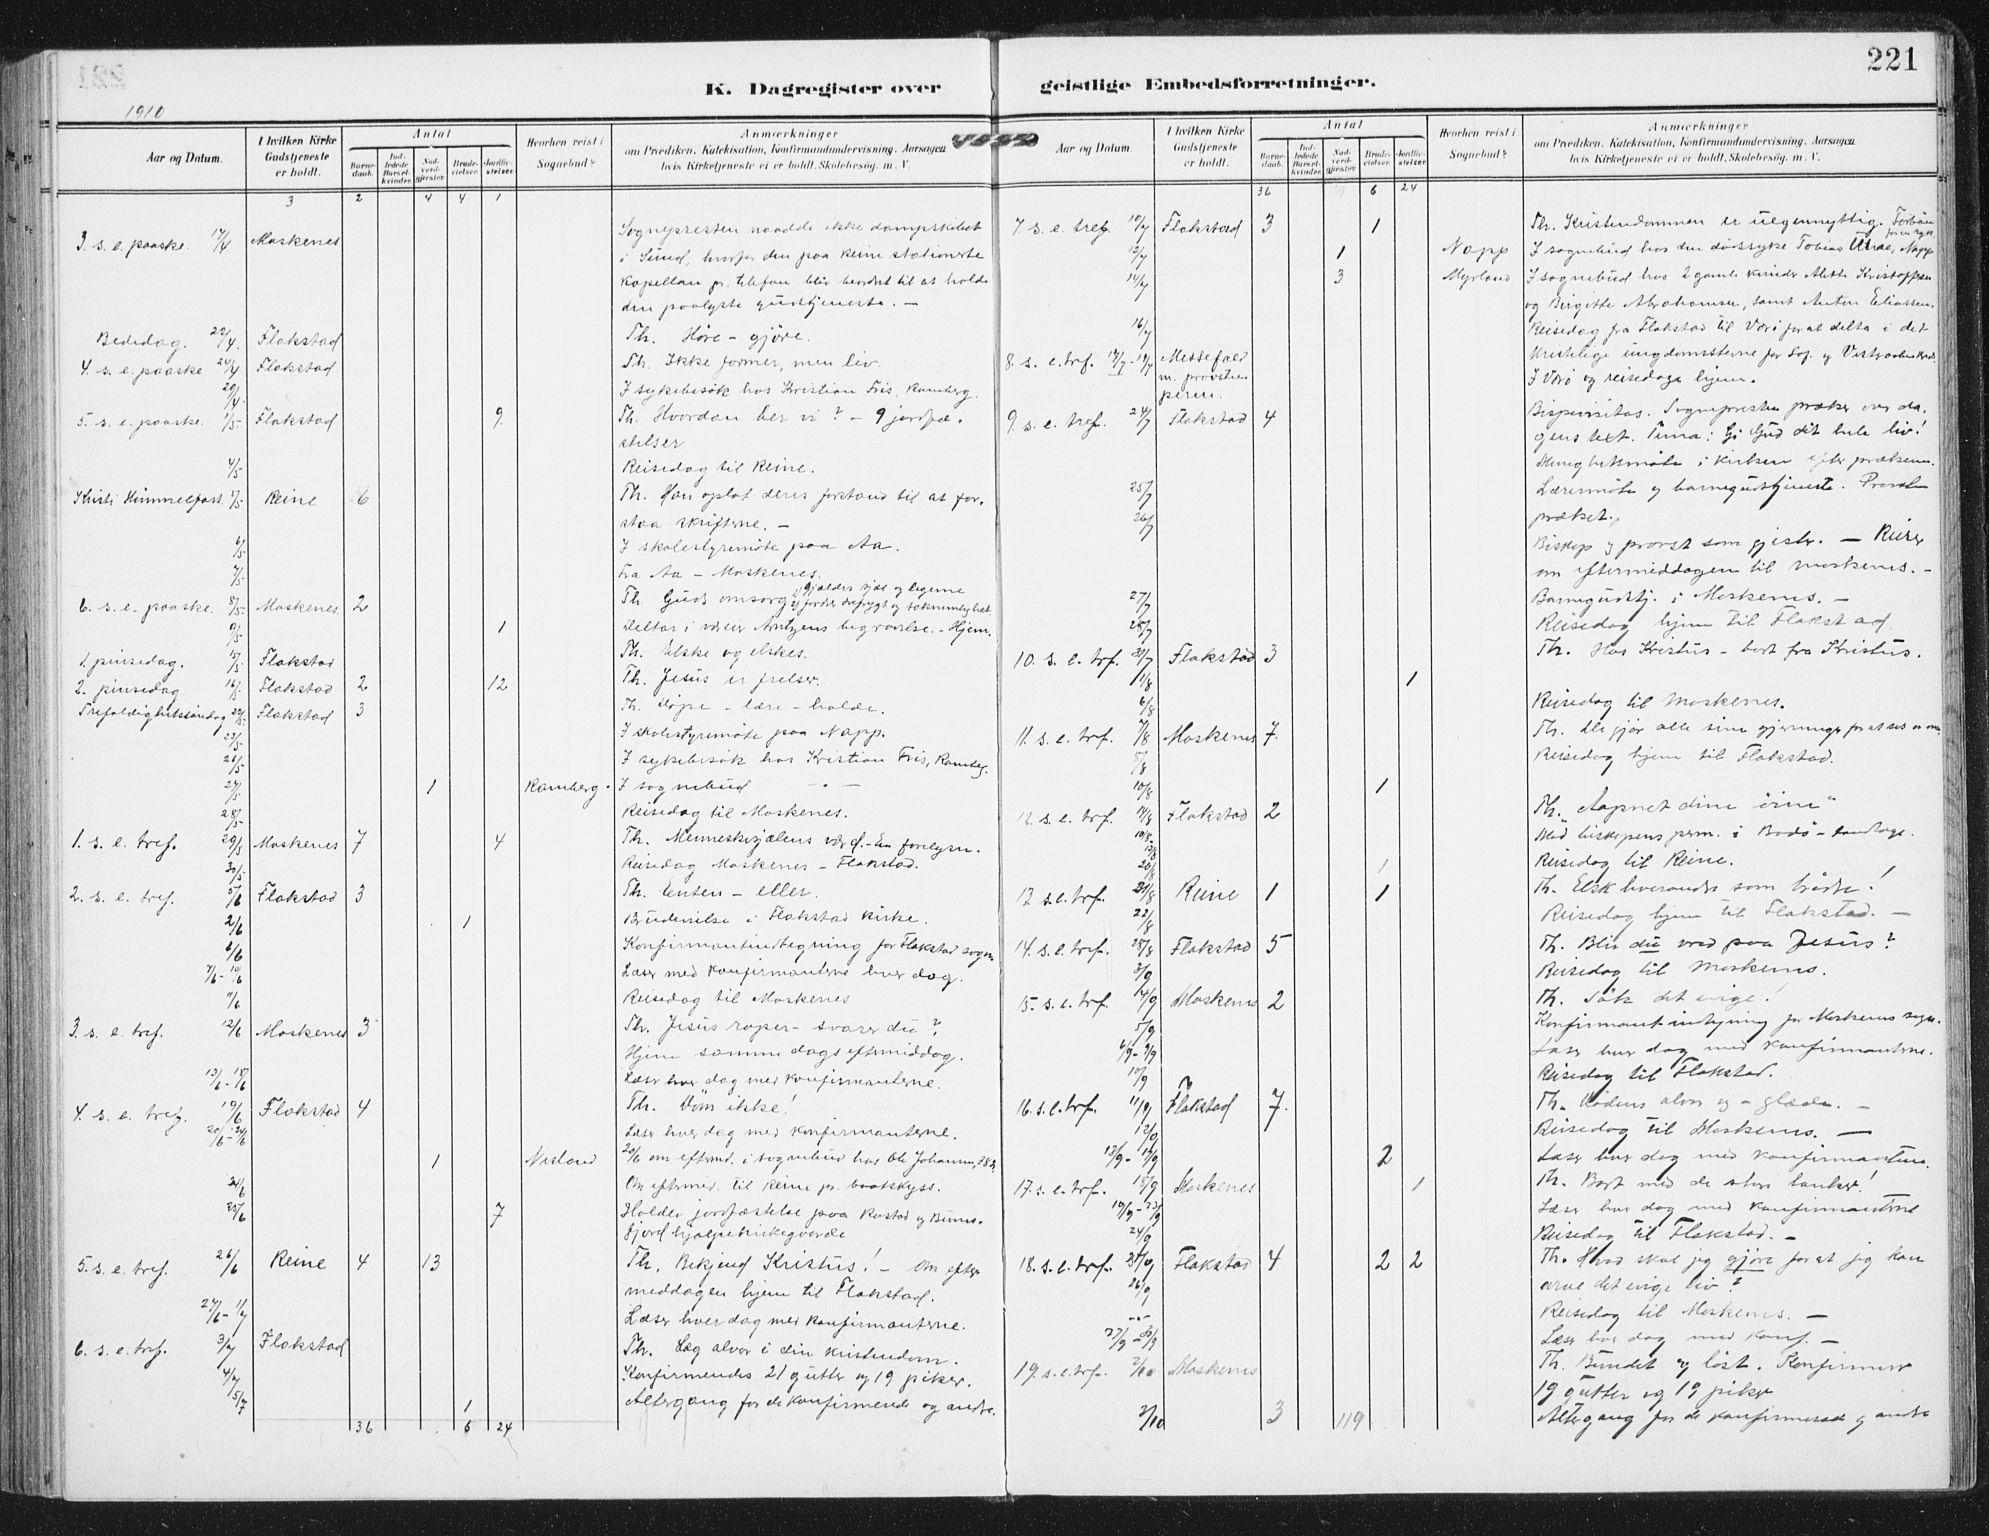 221
K. Dagregister over geistlige Embedsforretninger.
1910
Aar og Datum.
I hvilken Kirke Gudstjeneste er holdt.
Antal
Barnedaab.
Indledede Barselkvinder.
Nadverdgjester.
Brudevielser.
Jordfæstelser.
Hvorhen reist i Sognebud?
Anmærkninger
om Prædiken, Katekisation, Konfirmandundervisning, Aarsagen
hvis Kirketjeneste ei er holdt, Skolebesög, m. V.
3 2 4 4 1
3. s. e. paaske. 17/4 Moskenes Sognepresten naadde ikke dampskibet
i Sund, hvorfor den paa Reine stationerte
kapellan pr. telefon blev beordret til at holde
den paalyste gudstjeneste. –
Bededag. 22/4. Flakstad Th. Höre – gjöre.
4. s. e. paaske 24/4 Flakstad Th. Ikke former, men liv.
29/4. I sykebesök hos Kristian Fris, Ramberg.
5. s. e. paaske. 1/5 Flakstad 9. Th. Hvordan ber vi? – 9 jordfæ-
stelser
4/5 Reisedag til Reine.
Kristi Himmelfart 5/5 Reine 6 Th. Han oplot deres forstand til at for-
staa skrifterne. –
6/5 I skolestyremöte paa Aa.
7/5 Fra Aa – Moskenes.
6. s. e. paaske. 8/5 Moskenes. 2 Th. Guds omsorg 1) gjælder sjæl og legeme
9/5 1 Deltar i væreier Arntzens begravelse. – Hjem.
1. pinsedag. 15/5 Flakstad Th. Elske og elskes.
2. pinsedag 16/5 Flakstad 2 12 Th. Jesus er frelser.
Trefoldighetssöndag 22/5 Flakstad 3 Th. Döpe – lære – holde.
23/5 I skolestyremöte paa Napp.
26/5 I sykebesök hos Kristian Fris, Ramberg.
27/5 1 Ramberg. I sognebud – " –
28/5 Reisedag til Moskenes.
1. s. e. tref. 29/5 Moskenes 7 4 Th. Menneskesjælens værd. –
30/5 Reisedag Moskenes – Flakstad.
2. s. e. tref. 5/6 Flakstad 3 Th. Enten – eller.
2/6 1 Brudevielse i Flakstad kirke.
6/6 Konfirmantindtegning for Flakstad sogn
7/6 – 10/6 Læser med konfirmanterne hver dag.
11/6 Reisedag til Moskenes
3. s. e. tref. 12/6 Moskenes 3 Th. Jesus roper – svarer du?
Hjem samme dags eftermiddag.
13/6 – 18/6 Læser hver dag med konfirmanterne.
4. s. e. tref. 19/6 Flakstad 4 Th. Döm ikke!
20/6 – 24/6 Læser hver dag med konfirmanterne.
1 Nusland 20/6 om eftmd. i sognebud hos Ole Johansen,
24/6 Om eftmed. til Reine pr. baatskyss.
25/6 7 Holder jordfæstelse paa Rostad og Bunes-
fjord hjælpekirkegaarde
5. s. e. tref. 26/6 Reine 4 13 Th. Bekjend Kristus! – Om efter-
meddagen hjem til Flakstad.
27/6 – 1/7 Læser hver dag med konfirmanterne.
6. s. e. tref. 3/7 Flakstad Th. Læg alvor i din kristendom.
4/7 Konfirmerdes 21 gutter og 19 piker.
5/7 1 Altergang for de konfirmerede og andre.
36 6 24
Aar og Datum.
I hvilken Kirke Gudstjeneste er holdt.
Antal
Barnedaab.
Indledede Barselkvinder.
Nadverdgjester.
Brudevielser.
Jordfæstelser.
Hvorhen reist i Sognebud?
Anmærkninger
om Prædiken, Katekisation, Konfirmandundervisning, Aarsagen
hvis Kirketjeneste ei er holdt, Skolebesög, m. V.
36 6 24
7. s. e. tref. 10/7 Flakstad 3 1 Th. Kristendommen er uegennyttig.
12/7 1 Napp I sognebud hos den dödssyke Tobias Napp
14/7 3 Myrland I sognebud hos 2 gamle kvinder Mette Kristoffersen
og Birgitte Abrahamsen, samt Anton Eliassen.
16/7 Reisedag fra Flakstad til Værö for at delta i det
8. s. e. trf. 17/7 – 19/7 Messefald m. provstens perm. kristelige ungdomsstevne for Lof. og
I Værö og reisedage hjem.
9. s. e. tref. 24/7 Flakstad 4 Bispevisitas. Sognepresten præker over da-
gens text. Tema: Gi Gud dit hele liv!
Menighetsmöte i kirken efter prækenen.
25/7 Lærermöte og barnegudstjeneste. Provsten
præket.
26/7 Biskop og provst som gjester. – Reiser
om eftermiddagen til Moskenes. –
27/7 Barnegudstj. i Moskenes. –
28/7 Reisedag hjem til Flakstad.
10. s. e. trf. 31/7 Flakstad 3 Th. Hos Kristus – bort fra Kristus.
1/8 1
6/8 Reisedag til Moskenes.
11. s. e. trf. 7/8 Moskenes 7. Th. De gjör alle sine gjerninger for at ses
8/8 Reisedag hjem til Flakstad.
10/8 1
12. s. e. trf. 14/8 Flakstad 2 Th. „Aapnet dine öine"
Med biskopens perm. i Bodö –
20/8 1 Reisedag til Reine.
13 s. e. trf. 21/8 Reine 1 1 Th. Elsk hverandre som brödre!
22/8 Reisedag hjem til Flakstad. –
14. s. e. trf. 28/8 Flakstad 5 Th. Blir du vred paa Jesus?
3/9 Reisedag til Moskenes.
15. s. e. trf. 4/9 Moskenes 2 Th. Sök det evige!
5/9 Konfirmant-indtegning for Moskenes sogn.
6/9 – 9/9 Læser hver dag med konfirmanterne.
10/9 Reisedag til Flakstad.
16. s. e. trf. 11/9 Flakstad 7. Th. Dödens alvor og – glæde. –
12/9 Reisedag til Moskenes. –
13/9 – 17/9 2 Læser hver dag med konfirmanterne.
17. s. e. trf. 18/9 Moskenes 1 Th. Bort med de store tanker!
19/9 – 23/9 Læser hver dag med konfirmanterne
24/9 Reisedag til Flakstad. –
18. s. e. trf. 25/9 Flakstad 4 2 2 Th. Hvad skal jeg gjöre for at jeg kan
arve det evige liv?
26/9 Reisedag til Moskenes. –
27/9 – 30/9 Læser hver dag med konf. –
19. s. e. trf. 2/10 Moskenes Th. Bundet og löst. Konfirmerer
19 gutter og 19 piker
3 119 Altergang for de konfirmerede og andre